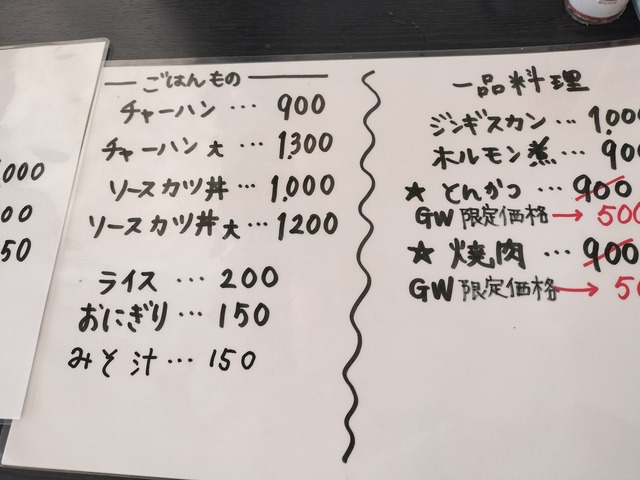 ,000
00
50
ごはんもの
チャーハン … 900
チャーハン 大 … 1,300
ソースカツ丼 … 1,000
ソースカツ丼 大 … 1200
ライス … 200
おにぎり … 150
みそ汁 … 150
一品料理
ジンギスカン … 1,000
ホルモン煮 … 900
★ とんかつ … 900
GW 限定価格 → 500
★ 焼肉 … 900
GW 限定価格 → 50